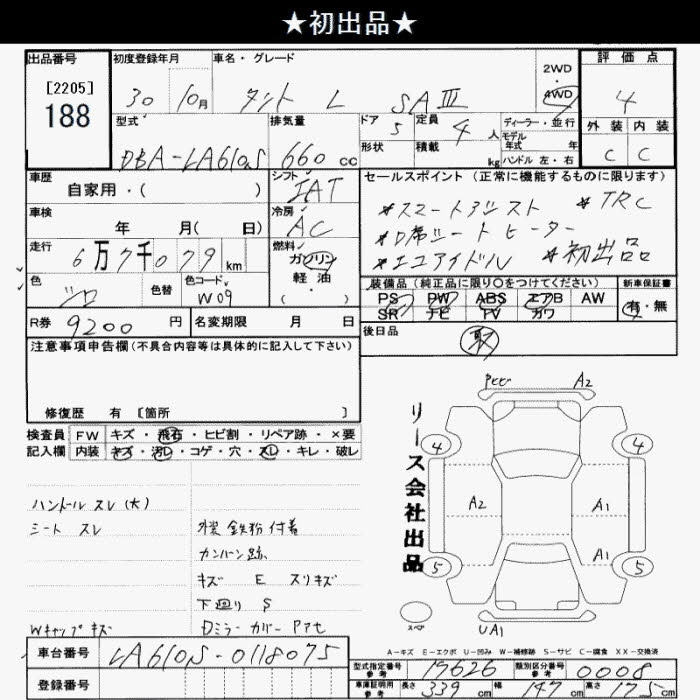 ★初出品★
出品番号 初度登録年月 車名・グレード 2WD 評価点
[2205] 30 10月 タント L SAⅢ 4WD 4
188
型式 排気量 ドア 定員 ディーラー・並行 外装 内装
DBA-LA610S 660 cc 5 4 人 モデル年式 年 C C
形状 積載 kg ハンドル 左・右
車歴 シフト セールスポイント (正常に機能するものに限ります)
自家用・( ) IAT
*スマートアシスト *TRC
車検 冷房
年 月( 日) AC
*D席シートヒーター
走行 燃料
6万7千079 km ガソリン
*エコアイドル *初出品
色 色替 色コード 軽油
シロ W09 ( )
装備品 (純正品に限り〇をつけてください) 新車保証書
PS PW ABS エアB AW 有・無
SR ナビ TV カワ
R券 9200 円 名変期限 月 日
後日品 取
注意事項申告欄(不具合内容等は具体的に記入して下さい)
修復歴 有 [箇所 ]
検査員 FW キズ・飛石・ヒビ割・リペア跡・×要
記入欄 内装 キズ・汚レ・コゲ・穴・スレ・キレ・破レ
ハンドル スレ(大)
シート スレ
外装 鉄粉付着
カンバン跡
キズ E スリキズ
下廻り S
Wキャップキズ
Dミラーカバー Pアセ
リース会社出品
Pヒビ A2
4 4
A2 A1
A1
5 5
スペア
UA1
A-キズ E-エクボ U-凹み W-補修跡 S-サビ C-腐食 XX-交換済
車台番号 LA610S-0118075
登録番号
型式指定番号 参考 19626 類別区分番号 参考 0008
車庫証明用 参考 長さ 339 cm 幅 147 cm 高さ 175 cm